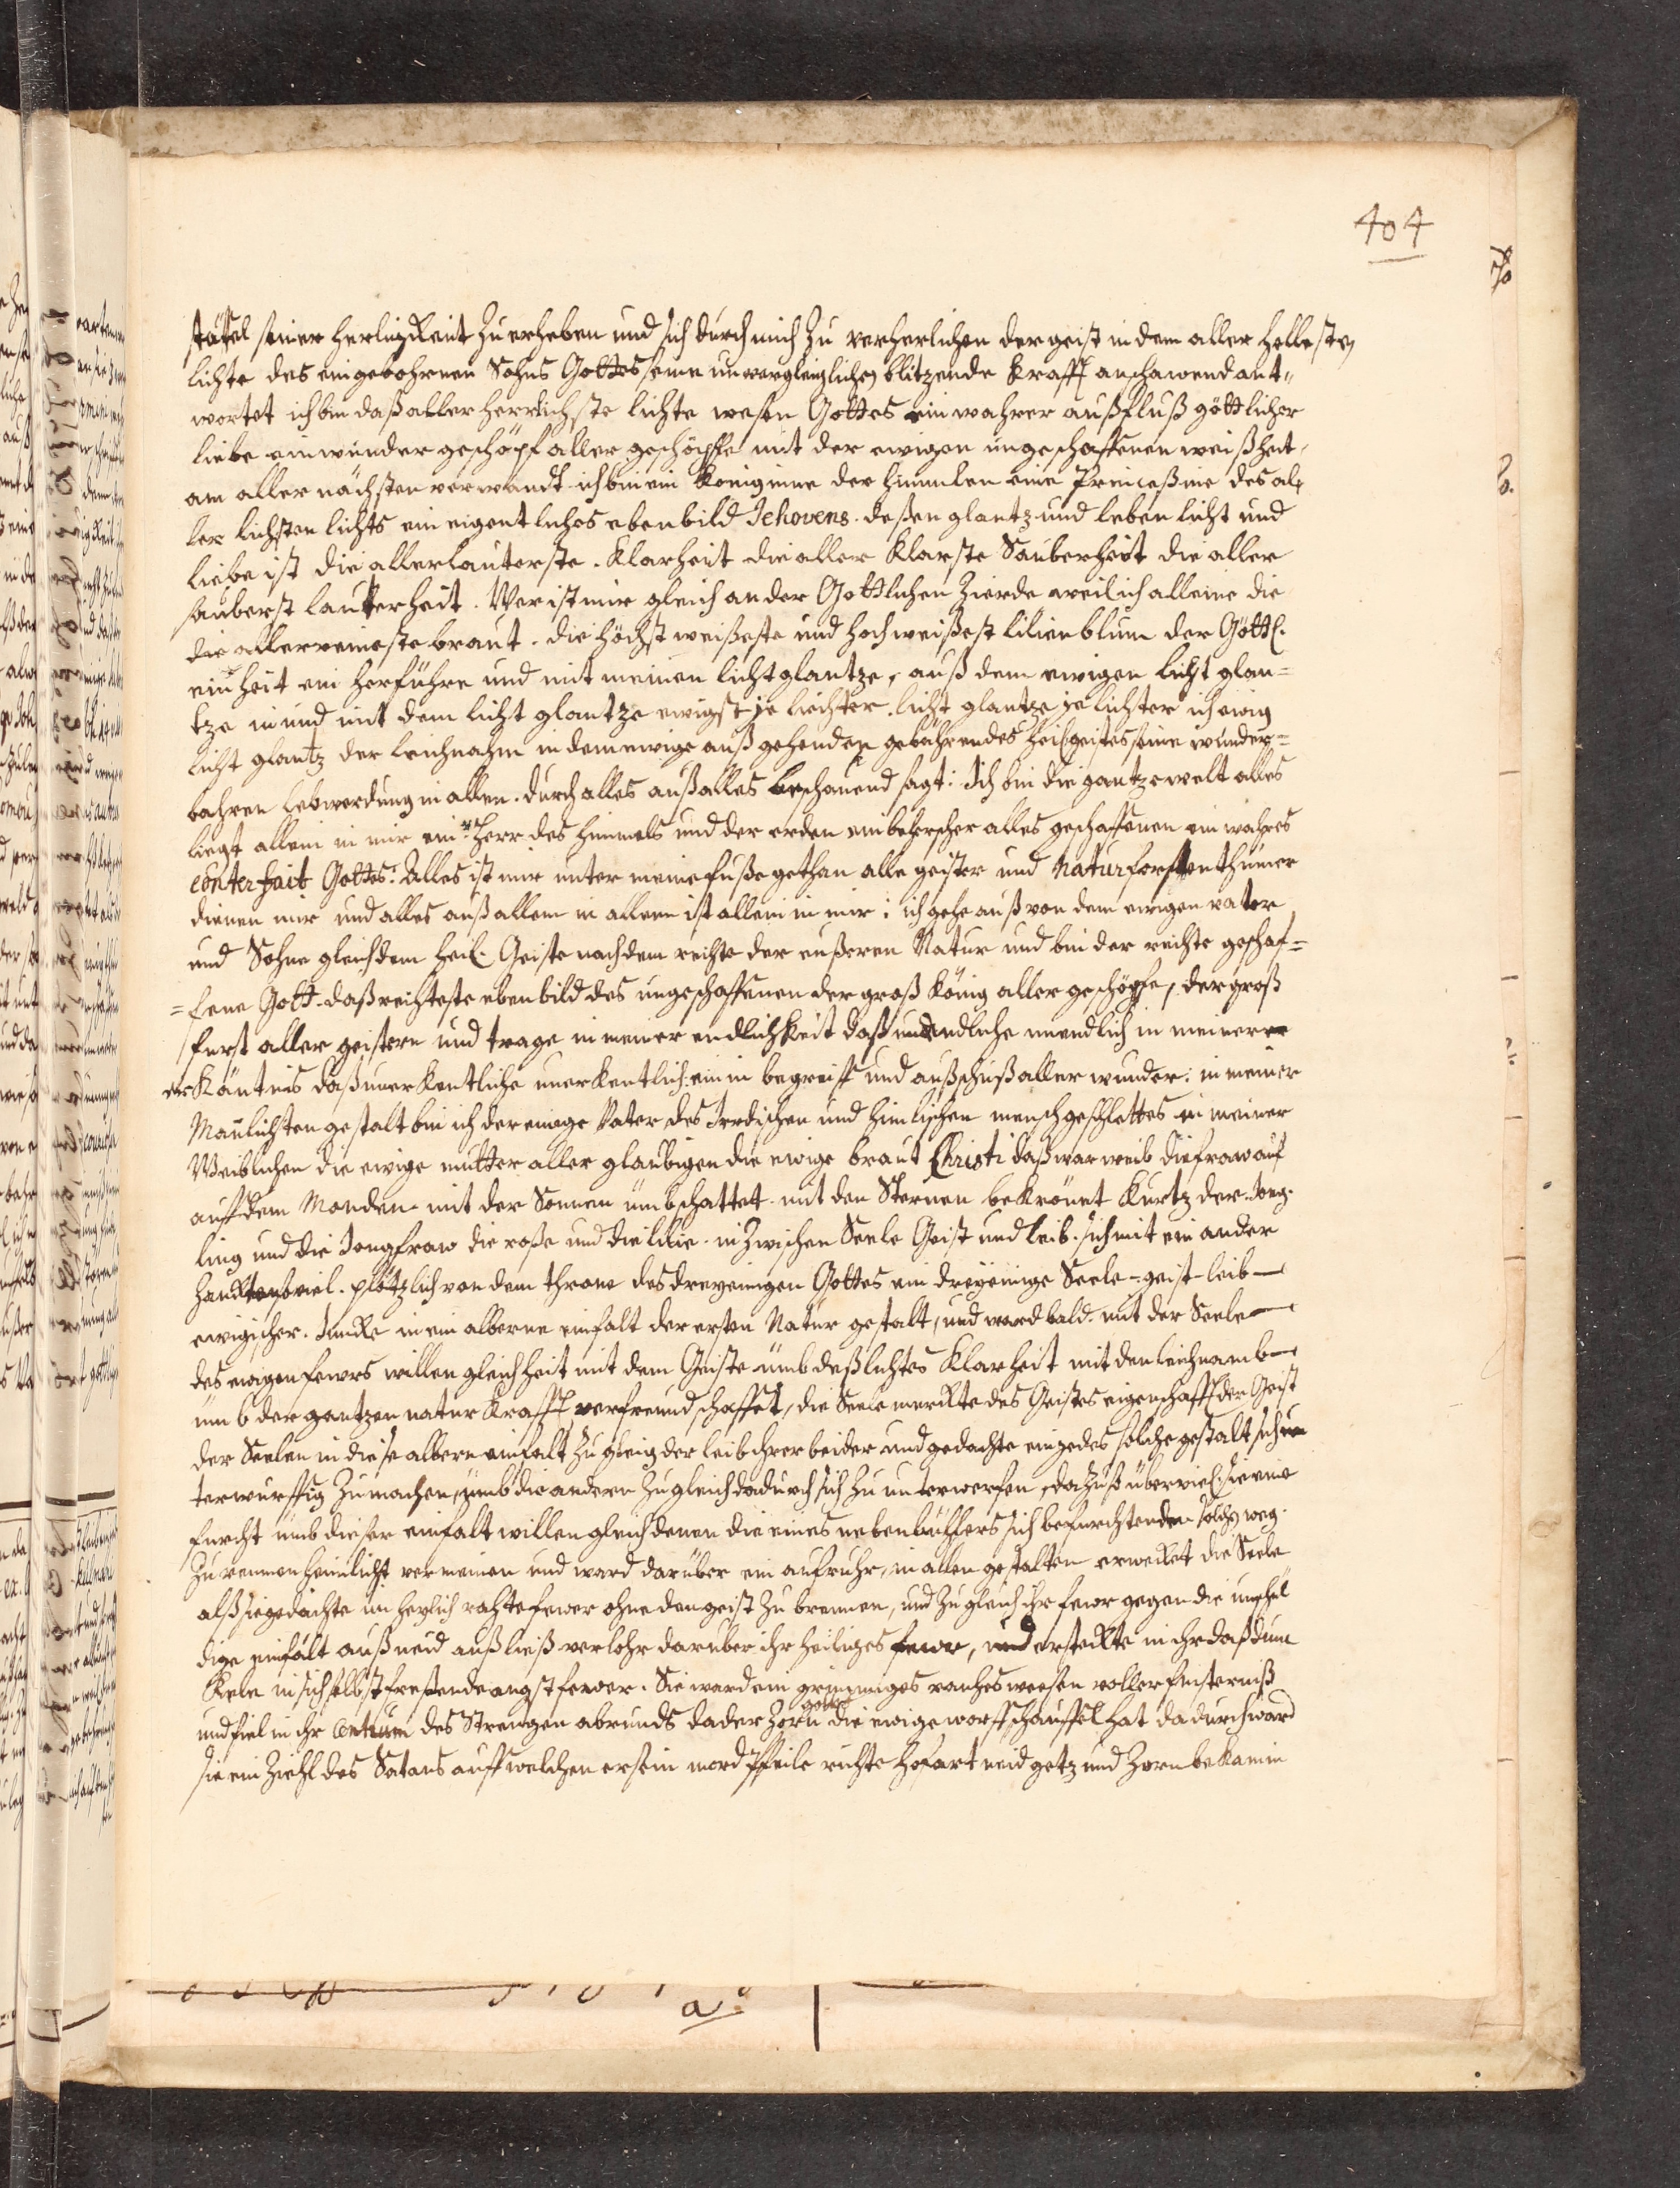 404
staffel seiner herligkeit zu erheben und sich durch mich zu verherlichen der geist in dem aller hellesten
lichte des eingebohrnen Sohns Gottes seine unvergleichliche blitzende krafft anschawend ant„
wortet ich bin daß aller herrlichste lichte wesen Gottes ein wahrer außfluß göttlicher
liebe ein wunder geschöpf aller geschöpffe mit der ewigen ungeschaffenen weißheit
am aller nächsten verwandt ich bin ein königinne der himmlen eine Princeßine des al„
ler lichsten lichts ein eigentliches ebenbild Jehovens. deßen glantz und leben licht und
liebe ist die allerlauterste. klarheit die aller klarste Sauberheit die aller
sauberst lauterheit. Wer ist mir gleich an der Gottlichen zierde weil ich alleine die
die allerreineste braut. die höchst weißeste und hochweißest lilien blum der Göttl.
einheit ein herführe und mit meinen licht glantze, auß dem ewigen licht glan=
tze in und mit dem licht glantze ewigst je liechter licht glantze je lichter ich ewig
licht glantz der leichnahm in dem ewige auß gehenden gebährendes heil geistes seine wunder=
bahren lebwerdung in allen. durch alles auß alles beschauend sagt: Ich bin die gantze welt alles
liegt allein in mir ein Herr des himmels und der erden ein beherscher alles geschaffenen ein wahres
conterfait Gottes: Alles ist mir unter meine fuße gethan alle geister und Naturforstenthümer
dienen mir und alles auß allem in allem ist allein in mir: ich gehe auß von dem ewigen vater
und Sohne gleich dem heil. Geiste nach dem rechte der eußeren Natur und bin der rechte geschaf=
=fene Gott. daß rechteste ebenbild des ungeschaffenen der groß könig aller geschöpfe, der groß
furst aller geistern und trage in meiner endlichkeit daß unendliche unendlich in meiner
er käntnis daß unerkentliche unerkentlich: ein in begreiff und außschuß aller wunder: in meiner
Manlichsten gestalt bin ich der einige Vater des Irrdischen und himlischen menschgeschlettes in meiner
Weiblichen die ewige mutter aller glaubigen die ewige braut Christi daß war weib die fraw auf
auff dem Monden mit der Sonnen umbschattet. mit den Sternen bekrönet kurtz der Jong.
ling und die Jongfraw die rose und die lilie. in zwischen Seele Geist und leib. sich mit ein ander
viel. plötzlich von dem throne des dreyeinigen Gottes ein dreyeinige Seele-geist-leib—
ewigischer. in ein alberne einfalt der ersten Natur gestalt, und ward bald. mit der Seele—
des ewigen fewrs willen gleichheit mit dem Geiste umb deß lichtes klarheit mit den leichnamb—
umb der gantzen natur krafft verfreundschaffet, die Seele merckte des Geistes eigenschafft der Geist
der Seelen in diese albern einfalt zugleig der leib ihrer beider und gedachte ein jedes solche gestalt sich un
terwurffig zu machen, umb die andern zu gleich dadurch sich zu unterwerfen, sie eine
furcht umb dieser einfalt willen gleich denen die eines nebenbuhlers sich befurchtenden solchen weg.
zu reumen heimlicht vermeinen und ward darüber ein aufruhr, in allen gestalten erwecket die Seele
alß sie gedachte im fewer ohne den geist zu brennen, und zu gleich ihr fewr gegen die unschul
dige einfalt auß neid außließ verlohr daruber ihr heiliges fewr, und ersteckte in ihr daß dunc
kele in sich selbst freßende angst fewer. Sie ward ein grimmiges rauches weesen voller finsterniß
gottes
und fiel in ihr Centrum des Strengen abrunds da der Zorn die ewige worffschauffel hat dadurch ward
sie ein ziehl des Satans auff welchen er sein mord Pfeile richte hofart neid getz und Zorn bekam in
a